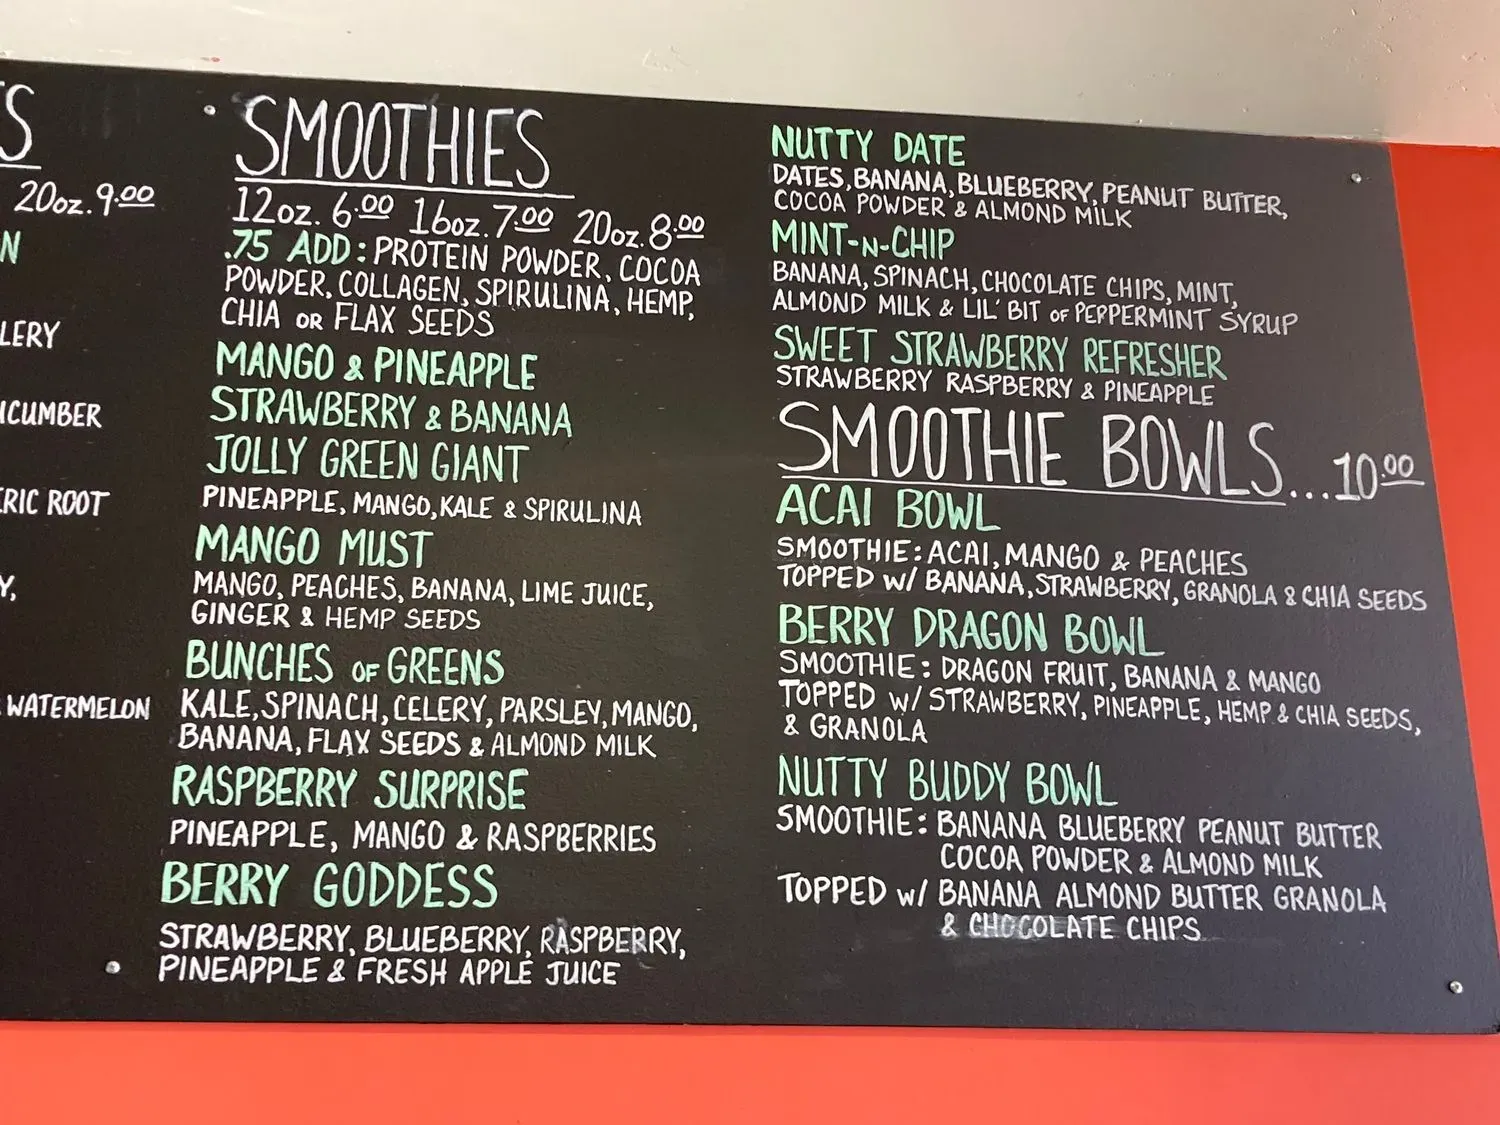 S
20oz. 9.00
N
LERY
CUMBER
RIC ROOT
Y,
WATERMELON
SMOOTHIES
12oz. 6.00 16oz. 7.00 20oz. 8.00
.75 ADD: PROTEIN POWDER, COCOA
POWDER, COLLAGEN, SPIRULINA, HEMP,
CHIA OR FLAX SEEDS
MANGO & PINEAPPLE
STRAWBERRY & BANANA
JOLLY GREEN GIANT
PINEAPPLE, MANGO, KALE & SPIRULINA
MANGO MUST
MANGO, PEACHES, BANANA, LIME JUICE,
GINGER & HEMP SEEDS
BUNCHES OF GREENS
KALE, SPINACH, CELERY, PARSLEY, MANGO,
BANANA, FLAX SEEDS & ALMOND MILK
RASPBERRY SURPRISE
PINEAPPLE, MANGO & RASPBERRIES
BERRY GODDESS
STRAWBERRY, BLUEBERRY, RASPBERRY,
PINEAPPLE & FRESH APPLE JUICE
NUTTY DATE
DATES, BANANA, BLUEBERRY, PEANUT BUTTER,
COCOA POWDER & ALMOND MILK
MINT-N-CHIP
BANANA, SPINACH, CHOCOLATE CHIPS, MINT,
ALMOND MILK & LIL' BIT OF PEPPERMINT SYRUP
SWEET STRAWBERRY REFRESHER
STRAWBERRY RASPBERRY & PINEAPPLE
SMOOTHIE BOWLS...10.00
ACAI BOWL
SMOOTHIE: ACAI, MANGO & PEACHES
TOPPED W/ BANANA, STRAWBERRY, GRANOLA & CHIA SEEDS
BERRY DRAGON BOWL
SMOOTHIE: DRAGON FRUIT, BANANA & MANGO
TOPPED W/ STRAWBERRY, PINEAPPLE, HEMP & CHIA SEEDS,
& GRANOLA
NUTTY BUDDY BOWL
SMOOTHIE: BANANA BLUEBERRY PEANUT BUTTER
COCOA POWDER & ALMOND MILK
TOPPED W/ BANANA ALMOND BUTTER GRANOLA
& CHOCOLATE CHIPS